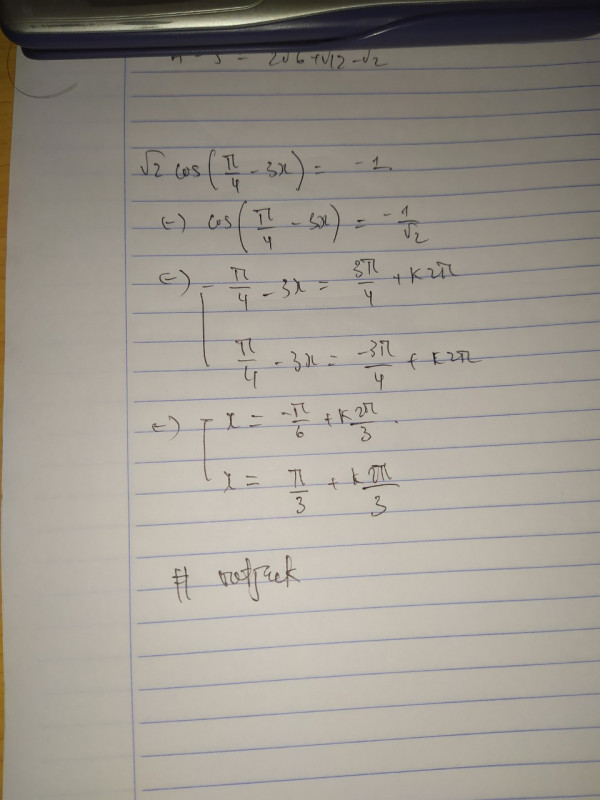 2√6 + √12 - √2
√2 cos(π/4 - 3x) = -1
⇔) cos(π/4 - 3x) = -1/√2
⇔) [ π/4 - 3x = 3π/4 + k2π
π/4 - 3x = -3π/4 + k2π
⇔) [ x = -π/6 + k2π/3.
x = π/3 + k2π/3
#